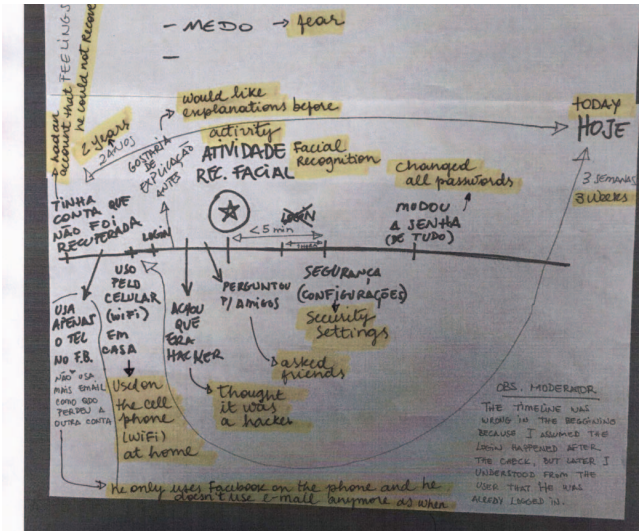 - MEDO → fear
-
had an
account that
he could not Recove
FEELINGS
2 years
2 ANOS
would like
explanations before
GOSTARIA
DE
EXPLICAÇÃO
ANTES
activity
ATIVIDADE
REC. FACIAL
Facial
Recognition
TODAY
HOJE
3 SEMANAS
3 weeks
changed
all passwords
MUDOU
A SENHA
(DE TUDO)
TINHA
CONTA QUE
NÃO FOI
RECUPERADA
LOGIN
< 5 min
LOGIN
USA
APENAS
O TEL
NO F.B.
NÃO USA
MAIS EMAIL
COMO QDO
PERDEU A
OUTRA CONTA
USO
PELO
CELULAR
(WiFi)
EM
CASA
Used on
the cell
phone
(WiFi)
at home
ACHOU
QUE
ERA
HACKER
Thought
it was
a hacker
PERGUNTOU
P/ AMIGOS
asked
friends
SEGURANÇA
(CONFIGURAÇÕES)
Security
settings
OBS. MODERATOR
THE TIMELINE WAS
WRONG IN THE BEGINNING
BECAUSE I ASSUMED THE
LOGIN HAPPENED AFTER
THE CHECK, BUT LATER I
UNDERSTOOD FROM THE
USER THAT HE WAS
ALREADY LOGGED IN.
he only uses Facebook on the phone and he
doesn't use e-mail anymore as when